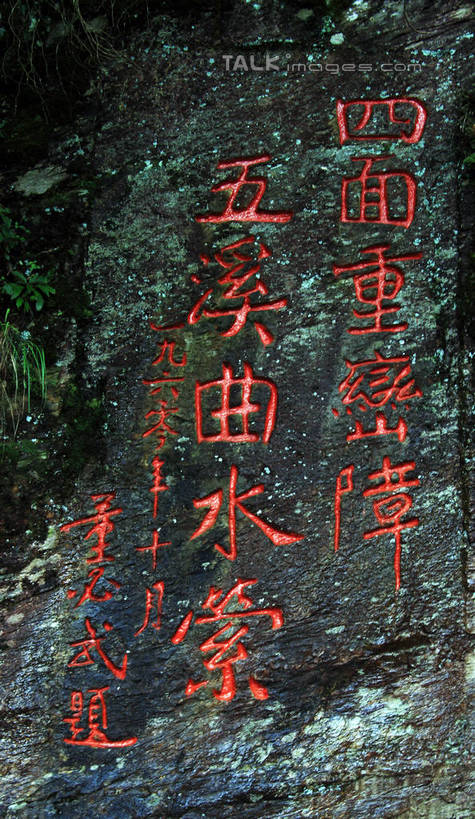 TALKimages.com
四面重巒障
五溪曲水縈
一九六零年十月
董必武題